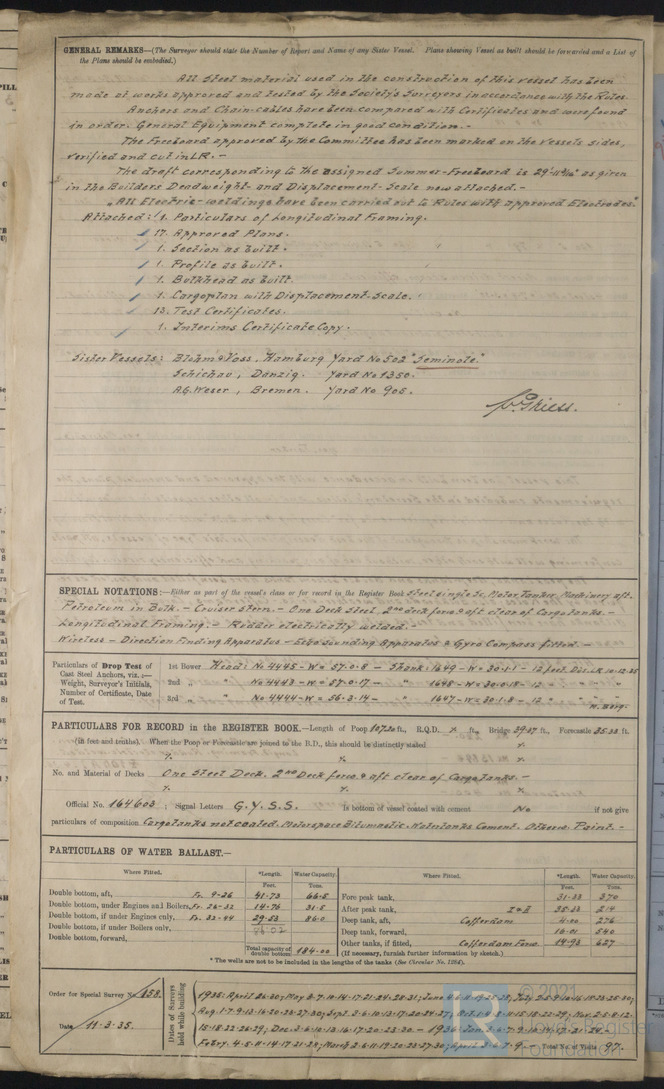 GENERAL REMARKS—(The Surveyor should state the Number of Report and Name of any Sister Vessel. Plans shewing Vessel as built should be forwarded and a List of
the Plans should be embodied.)
All Steel material used in the construction of this vessel has been
made at works approved and tested by the Society's Surveyors in accordance with the Rules.
Anchors and Chain-cables have been compared with Certificates and were found
in order. General Equipment complete in good condition.-
The Freeboard approved by the Committee has been marked on the vessels sides,
verified and cut in LR.-
The draft corresponding to the assigned Summer-Freeboard is as given
in the Builders Deadweight- and Displacement-Scale now attached.-
"All Electric-weldings have been carried out to Rules with approved Electrodes"
Attached: 1. Particulars of Longitudinal Framing.
17. Approved Plans.
1. Section as built.
1. Profile as built.
1. Bulkhead as built.
1. Cargoplan with Displacement-Scale.
13. Test Certificates.
1. Interims Certificate Copy.
Sister Vessels: Blohm & Voss, Hamburg Yard No 502 "Seminole"
Schichau, Danzig. Yard No 1350.
A.G. Weser, Bremen. Yard No 905.
SPECIAL NOTATIONS:—Either as part of the vessel's class or for record in the Register Book Steel single Sc. Motor Tanker Machinery aft.
Petroleum in Bulk.- Cruiser Stern.- One Deck Steel 2nd deck fore & aft clear of Cargotanks.-
Longitudinal Framing.- Rudder electrically welded.-
Wireless - Direction Finding Apparatus - Echo sounding Apparatus & Gyro Compass fitted.-
Particulars of Drop Test of
Cast Steel Anchors, viz.:—
Weight, Surveyor's Initials,
Number of Certificate, Date
of Test.
1st Bower Head: No 4445-W= 57-0-8 - Shank: 1649-W= 30-1-1 -
2nd " " No 4443-W= 57-0-17 - " 1648-W= 30-0-18 - 12 "
3rd " " No 4444-W= 56-3-14 - " 1647-W= 30-1-8 - 12 "
PARTICULARS FOR RECORD in the REGISTER BOOK.—Length of Poop 107.20 ft., R.Q.D. ft., Bridge 39.37 ft., Forecastle 35.33 ft.
(in feet and tenths). When the Poop or Forecastle are joined to the B.D., this should be distinctly stated
No. and Material of Decks One Steel Deck. 2nd Deck fore & aft clear of Cargotanks.-
Official No. 164603; Signal Letters G.Y.S.S. Is bottom of vessel coated with cement No if not give
particulars of composition Cargotanks not coated. Motorspace Bitumastic. Watertanks Cement. Paint.-
PARTICULARS OF WATER BALLAST.—
Where Fitted. *Length. Water Capacity.
Feet. Tons.
Double bottom, aft, Fr. 9-26 41.73 66.5
Double bottom, under Engines and Boilers, Fr. 26-32 14.76 31.5
Double bottom, if under Engines only, Fr. 32-44 29.53 86.0
Double bottom, if under Boilers only, 86.02
Double bottom, forward,
Total capacity of double bottom 184.00
Where Fitted. *Length. Water Capacity.
Feet. Tons.
Fore peak tank, 31.33 370
After peak tank, I & II 35.33 214
Deep tank, aft, Cofferdam 4.00 276
Deep tank, forward, 16.01 540
Other tanks, if fitted, Cofferdam Forw. 14.93 627
(If necessary, furnish further information by sketch.)
* The wells are not to be included in the lengths of the tanks (See Circular No. 1284).
Order for Special Survey No. 158.
Date 11-3-35.
Dates of Surveys
held while building
1935: April 26-30; May 3-7-10-14-17-21-24-28-31; June
Aug. 1-7-9-13-16-20-23-27-30; Sept. 3-6-10-13-17-20-24-27;
15-18-22-26-29; Dec. 3-6-10-13-16-17-20-23-30 - 1936
Febry. 4-5-11-14-17-21-24; March 3-6-11-19-20-23-27-30; April 2-6-7-9 — Total No. of Visits 97.
LR
© 2021
Lloyds Register
Foundation